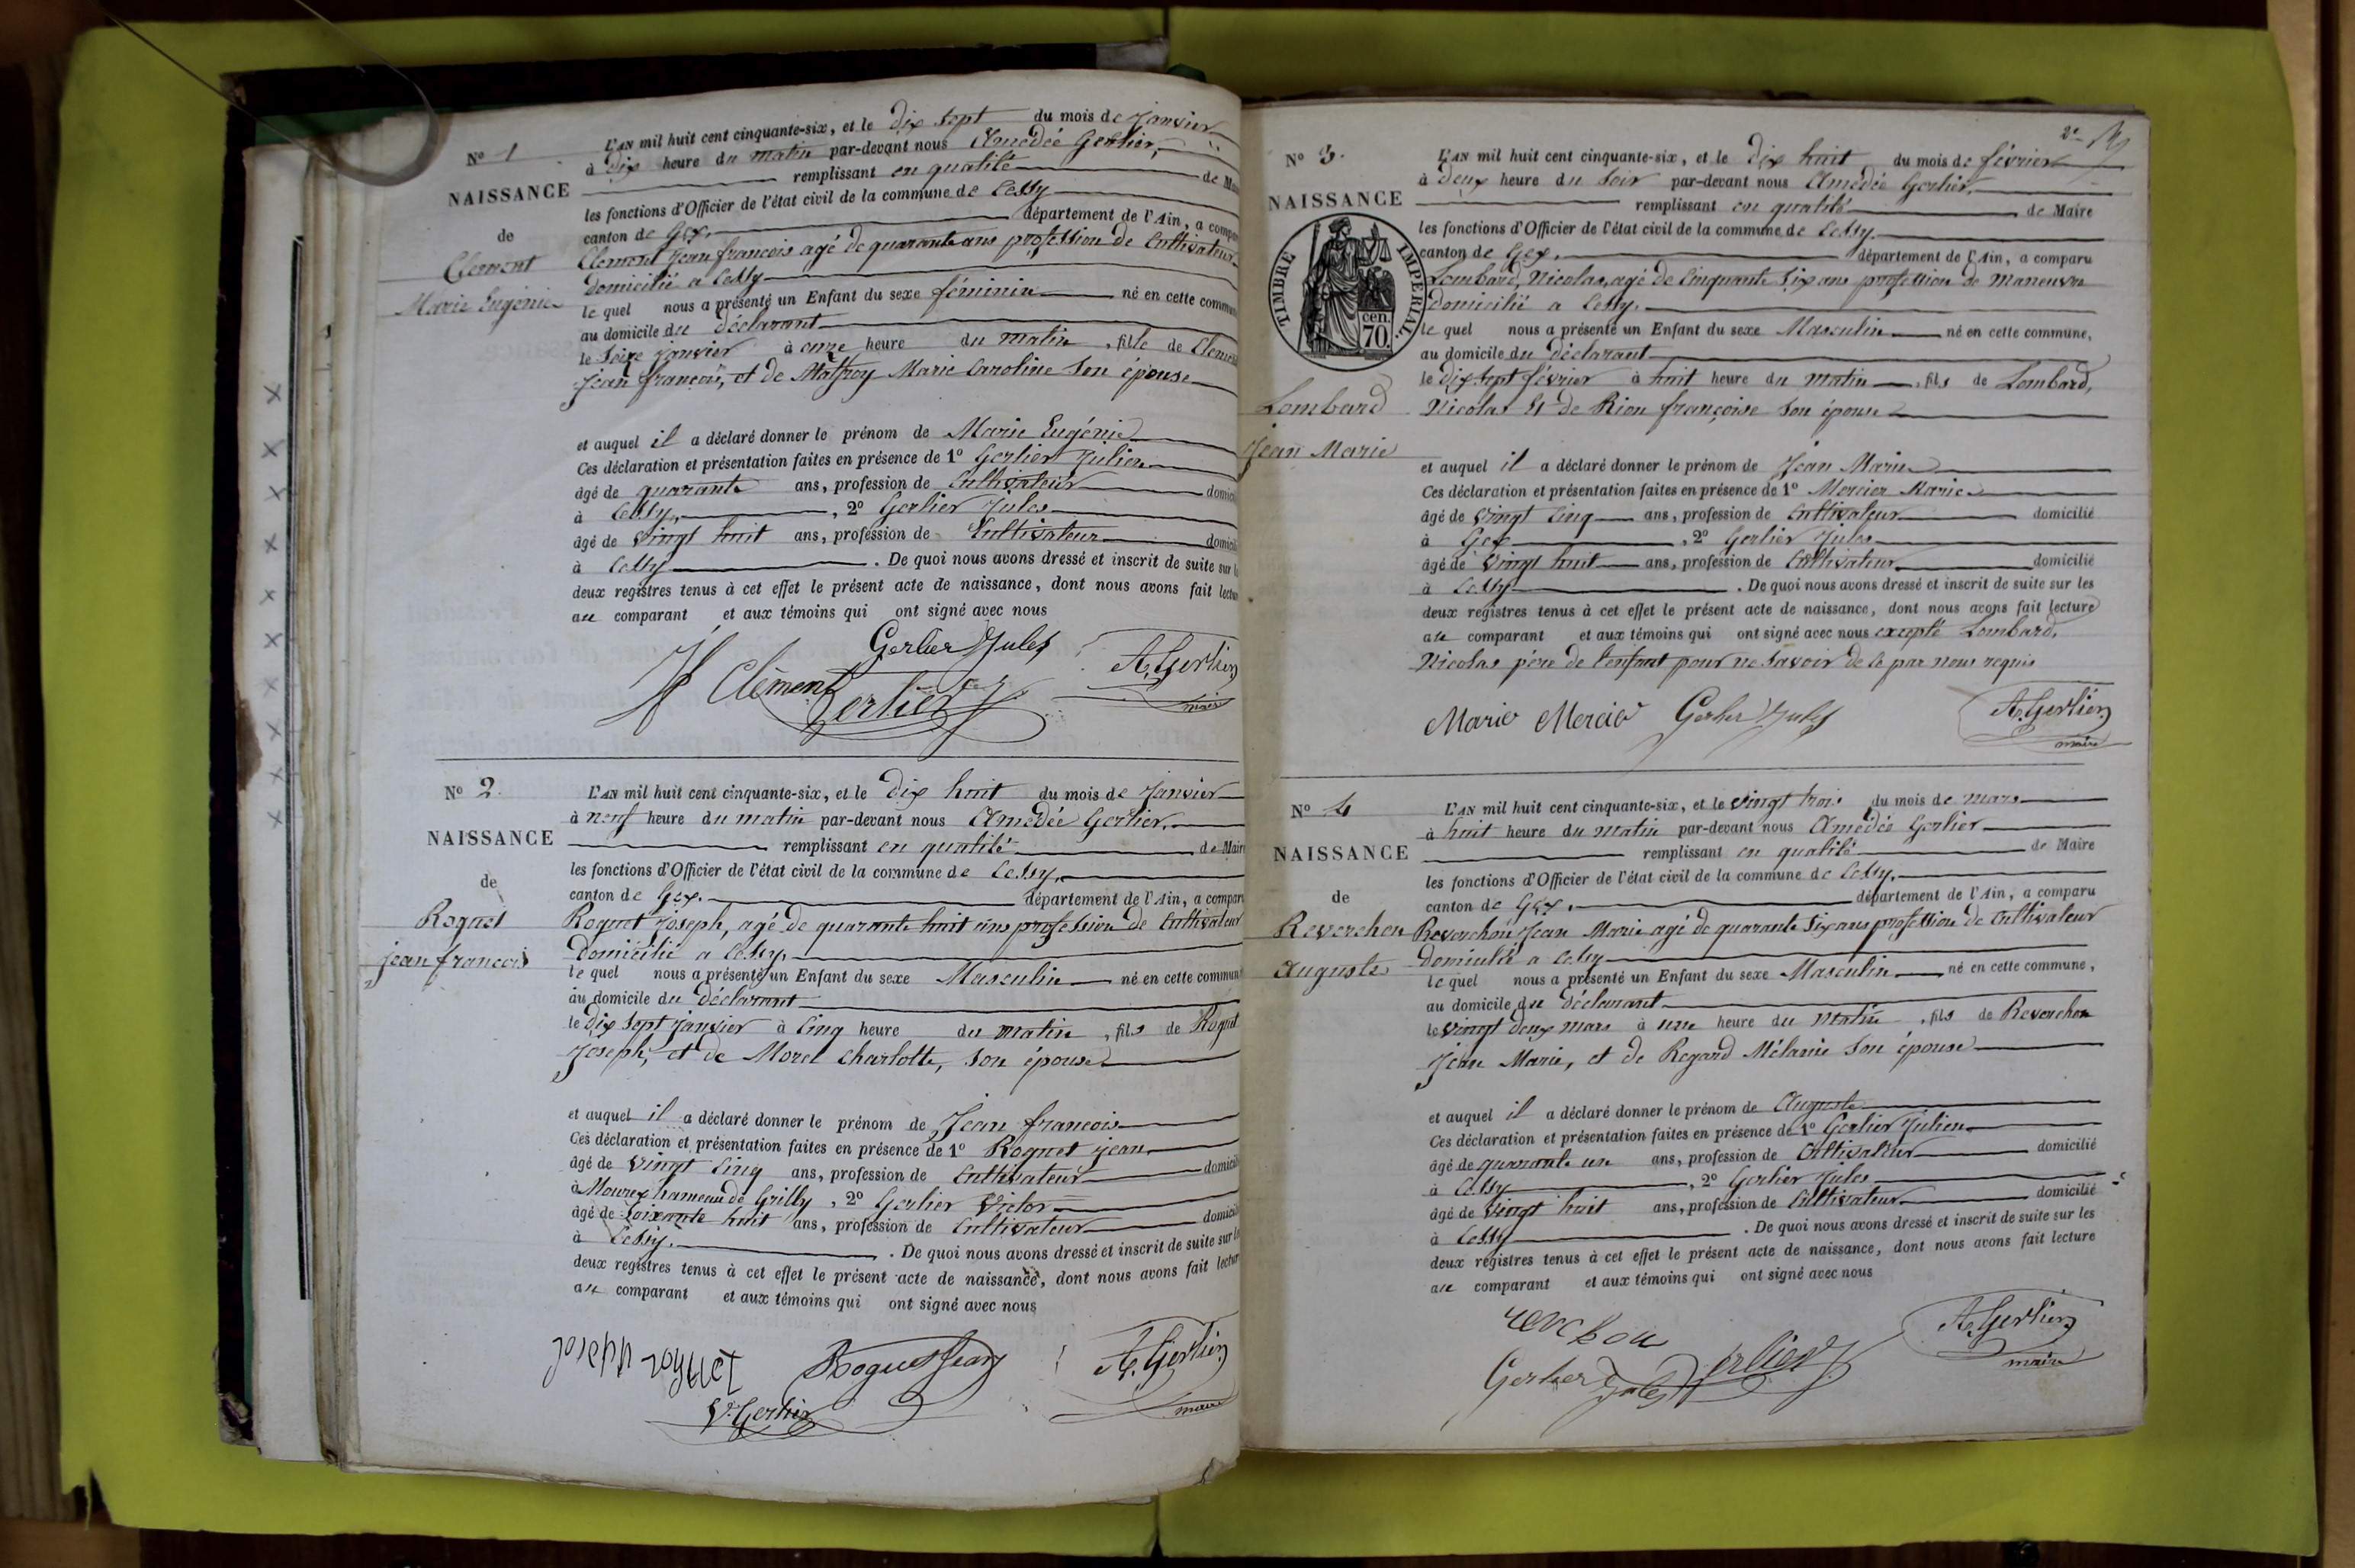 N° 1
NAISSANCE
de
Clement
Marie Eugénie
L'AN mil huit cent cinquante-six, et le dix sept du mois de janvier
à dix heure du matin par-devant nous Amédée Gerlier,
remplissant en qualité de
les fonctions d'Officier de l'état civil de la commune de Cessy
canton de Gex. département de l'Ain, a
Clement Jean francois agé de quarante ans profession de Cultivateur
domicilié a Cessy
le quel nous a présenté un Enfant du sexe féminin né en cette
au domicile du déclarant
le seize janvier à onze heure du matin, fille de
Jean francois, et de Matfroy Marie Caroline son épouse
et auquel il a déclaré donner le prénom de Marie Eugénie
Ces déclaration et présentation faites en présence de 1° Gerlier Julien
âgé de quarante ans, profession de Cultivateur
à Cessy, , 2° Gerlier Jules
âgé de vingt huit ans, profession de Cultivateur
à Cessy . De quoi nous avons dressé et inscrit de suite sur
deux registres tenus à cet effet le présent acte de naissance, dont nous avons fait
au comparant et aux témoins qui ont signé avec nous
Gerlier Jules
A. Gerlier
Clément
Gerlier
maire
N° 2.
NAISSANCE
de
Roquet
jean francois
L'AN mil huit cent cinquante-six, et le dix huit du mois de janvier
à neuf heure du matin par-devant nous Amédée Gerlier.
remplissant en qualité de Maire
les fonctions d'Officier de l'état civil de la commune de Cessy,
canton de Gex. département de l'Ain, a
Roquet Joseph, agé de quarante huit ans profession de Cultivateur
domicilié a Cessy,
le quel nous a présenté un Enfant du sexe Masculin né en cette
au domicile du déclarant
le dix sept janvier à cinq heure du matin, fils de Roquet
Joseph, et de Morel Charlotte, son épouse
et auquel il a déclaré donner le prénom de Jean francois
Ces déclaration et présentation faites en présence de 1° Roquet jean
âgé de vingt cinq ans, profession de Cultivateur
à Mourex hameau de Grilly, 2° Gerlier Victor
âgé de soixante huit ans, profession de Cultivateur
à Cessy. . De quoi nous avons dressé et inscrit de suite sur
deux registres tenus à cet effet le présent acte de naissance, dont nous avons fait
au comparant et aux témoins qui ont signé avec nous
joseph roquet
Roquet Jean
A. Gerlier
V. Gerlier
maire
N° 3.
NAISSANCE
TIMBRE IMPERIAL
70 cen.
Lombard
Jean Marie
L'AN mil huit cent cinquante-six, et le dix huit du mois de février
à deux heure du soir par-devant nous Amédée Gerlier,
remplissant en qualité de Maire
les fonctions d'Officier de l'état civil de la commune de Cessy.
canton de Gex. département de l'Ain, a comparu
Lombard, Nicolas, agé de cinquante six ans profession de Maneuvre
domicilié a Cessy.
le quel nous a présenté un Enfant du sexe Masculin né en cette commune,
au domicile du déclarant
le dix sept février à huit heure du matin, fils de Lombard,
Nicolas Et de Rion françoise son épouse
et auquel il a déclaré donner le prénom de Jean Marie
Ces déclaration et présentation faites en présence de 1° Mercier Marie
âgé de vingt cinq ans, profession de Cultivateur domicilié
à Gex , 2° Gerlier Jules
âgé de vingt huit ans, profession de Cultivateur domicilié
à Cessy . De quoi nous avons dressé et inscrit de suite sur les
deux registres tenus à cet effet le présent acte de naissance, dont nous avons fait lecture
au comparant et aux témoins qui ont signé avec nous excepté Lombard,
Nicolas père de l'enfant pour ne savoir de ce par nous requis
Marie Mercier
Gerlier Jules
A. Gerlier
maire
N° 4
NAISSANCE
de
Reverchon
Auguste
L'AN mil huit cent cinquante-six, et le vingt trois du mois de mars
à huit heure du matin par-devant nous Amédée Gerlier
remplissant en qualité de Maire
les fonctions d'Officier de l'état civil de la commune de Cessy,
canton de Gex. département de l'Ain, a comparu
Reverchon Jean Marie agé de quarante six ans profession de Cultivateur
domicilié a Cessy
le quel nous a présenté un Enfant du sexe Masculin né en cette commune,
au domicile du déclarant
le vingt deux mars à une heure du matin, fils de Reverchon
Jean Marie, et de Regard Mélanie son épouse
et auquel il a déclaré donner le prénom de Auguste
Ces déclaration et présentation faites en présence de 1° Gerlier Julien
âgé de quarante un ans, profession de Cultivateur domicilié
à Cessy , 2° Gerlier Jules
âgé de vingt huit ans, profession de Cultivateur domicilié
à Cessy . De quoi nous avons dressé et inscrit de suite sur les
deux registres tenus à cet effet le présent acte de naissance, dont nous avons fait lecture
au comparant et aux témoins qui ont signé avec nous
A. Gerlier
Gerlier Jules
Gerlier
maire